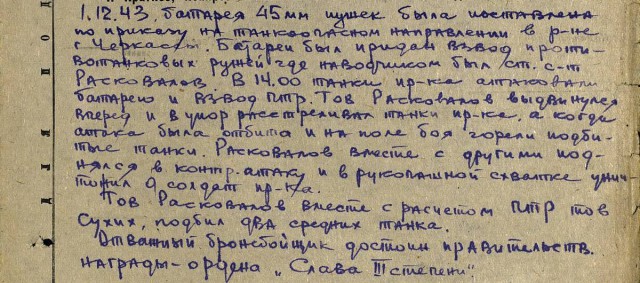 1.12.43. батарея 45мм пушек была поставлена
по приказу на танкоопасном направлении в р-не
г. Черкассы. Батареи был придан взвод проти-
вотанковых ружей где наводчиком был ст. с-т
Расковалов. В 14.00 танки пр-ка атаковали
батарею и взвод ПТР. Тов Расковалов выдвинулся
вперед и в упор расстреливал танки пр-ка, а когда
атака была отбита и на поле боя горели подби-
тые танки. Расковалов вместе с другими под-
нялся в контр-атаку и в рукопашной схватке унич-
тожил 9 солдат пр-ка.
Тов Расковалов вместе с расчетом ПТР тов
Сухих, подбил два средних танка.
Отважный бронебойщик достоин правительств.
награды-ордена „Слава III степени"